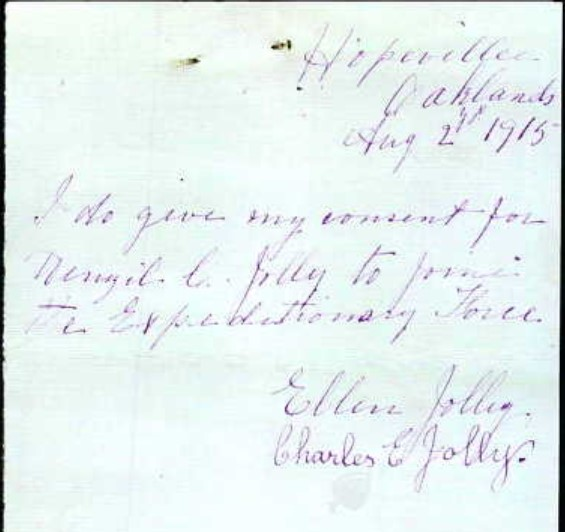 Hopeville
Oaklands
Aug 2nd 1915
I do give my consent for
Denzil C. Jolly to join
the Expeditionary Force
Ellen Jolly.
Charles E Jolly.